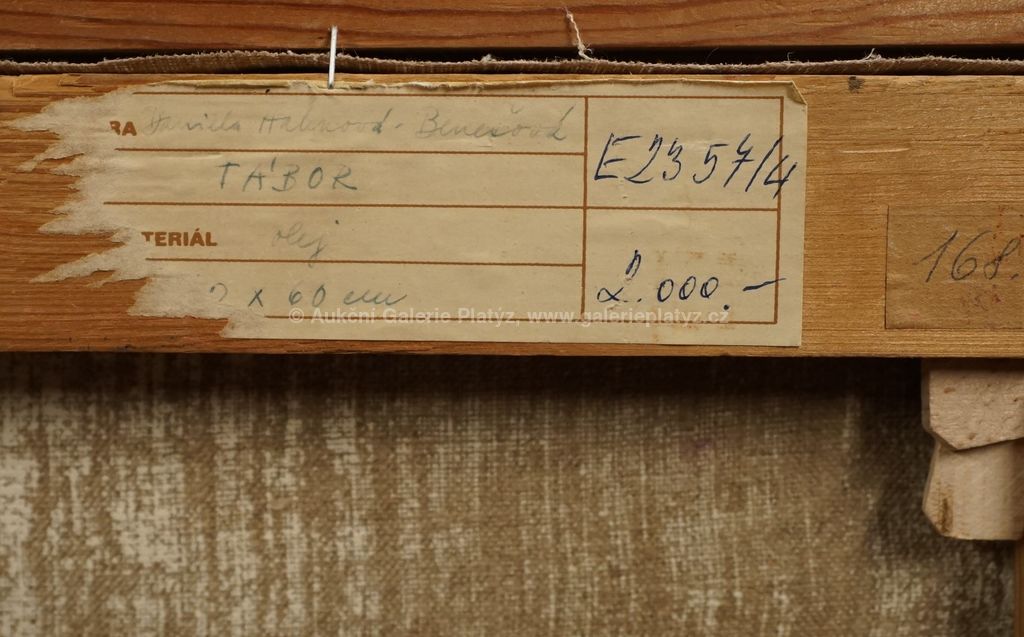 RA Daniella Hahnová-Benešová
TÁBOR
E2357/4
TERIÁL olej
2 x 60 cm
2.000.-
168.
© Aukční Galerie Platýz, www.galerieplatyz.cz